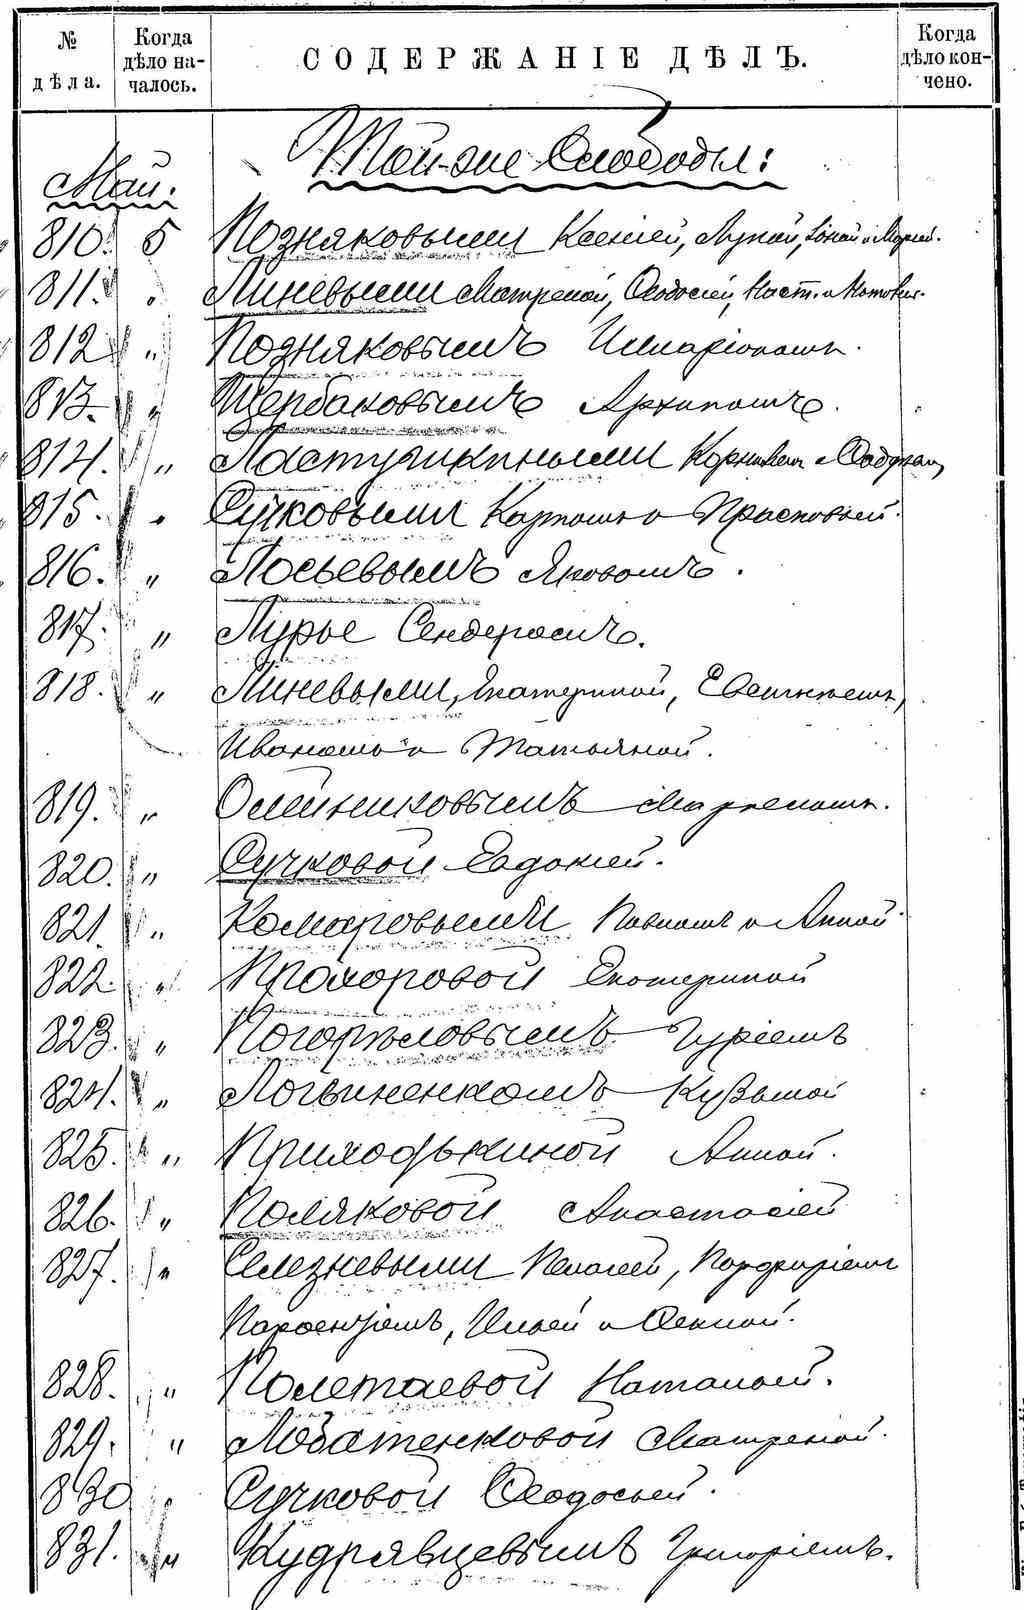 № дѣла. Когда дѣло началось. СОДЕРЖАНІЕ ДѢЛЪ. Когда дѣло кончено.
Май. Той-же Слободы:
810. 5 Позняковыми Ксеніей, Лукой, и Маріей.
811. " Линевыми Матреной, Ѳеодосіей, Наст. и
812 " Позняковымъ Илларіономъ.
813. " Щербаковымъ Архипомъ.
814. " Ластушкиными
815. " Сучковыми Карпомъ и Прасковьей.
816. " Лосьевымъ Яковомъ.
817. " Лурье Сендеромъ.
818. " Линевыми, Екатериной,
Иваномъ и Татьяной.
819. " Олейниковымъ
820. " Сучковой Евдокіей.
821. " Комаровыми Павломъ и Анной
822. " Прохоровой Екатериной
823. " Погорѣловымъ Гуріемъ
824. " Логвиненкомъ Кузьмой
825. " Приходькиной Анной.
826. " Поляковой Анастасіей
827. " Селезневыми Пелагеей, Порфиріемъ
Парфентіемъ, Ильей и Ѳеклой.
828. " Полетаевой Натальей.
829. " Лобатенковой Матреной.
830 " Сучковой Ѳеодосьей.
831. " Кудрявцевымъ Григоріемъ.